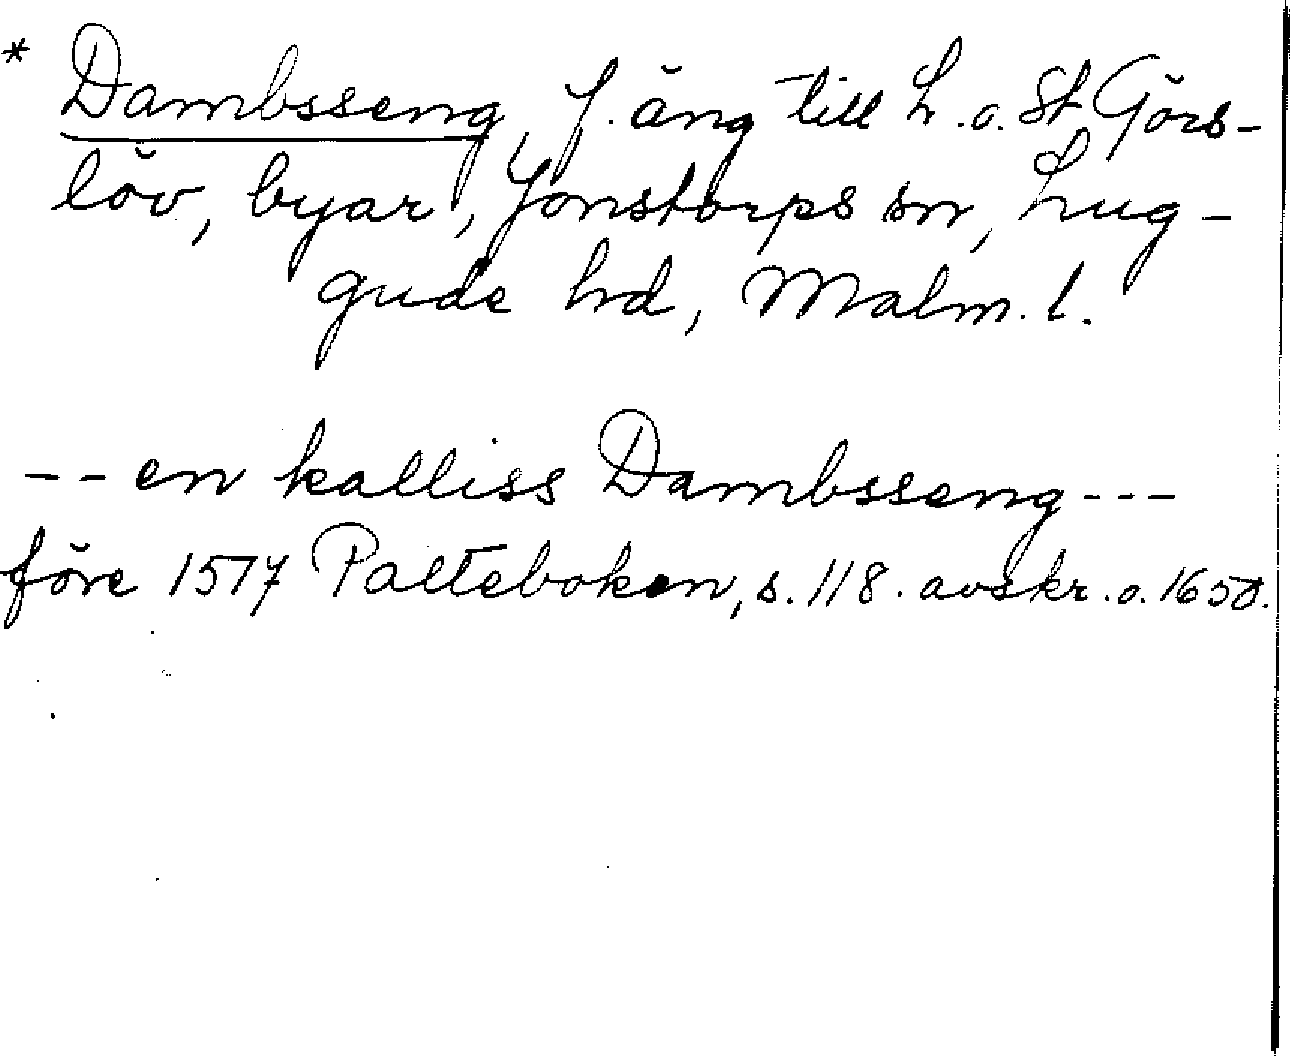 * Dambsseng, f. äng till L. o. St Görs-
löv, byar, Jonstorps sn, Lug-
gude hd, Malm. l.
-- en kalliss Dambsseng ---
före 1577 Palteboken, s. 118. avskr. o. 1650.